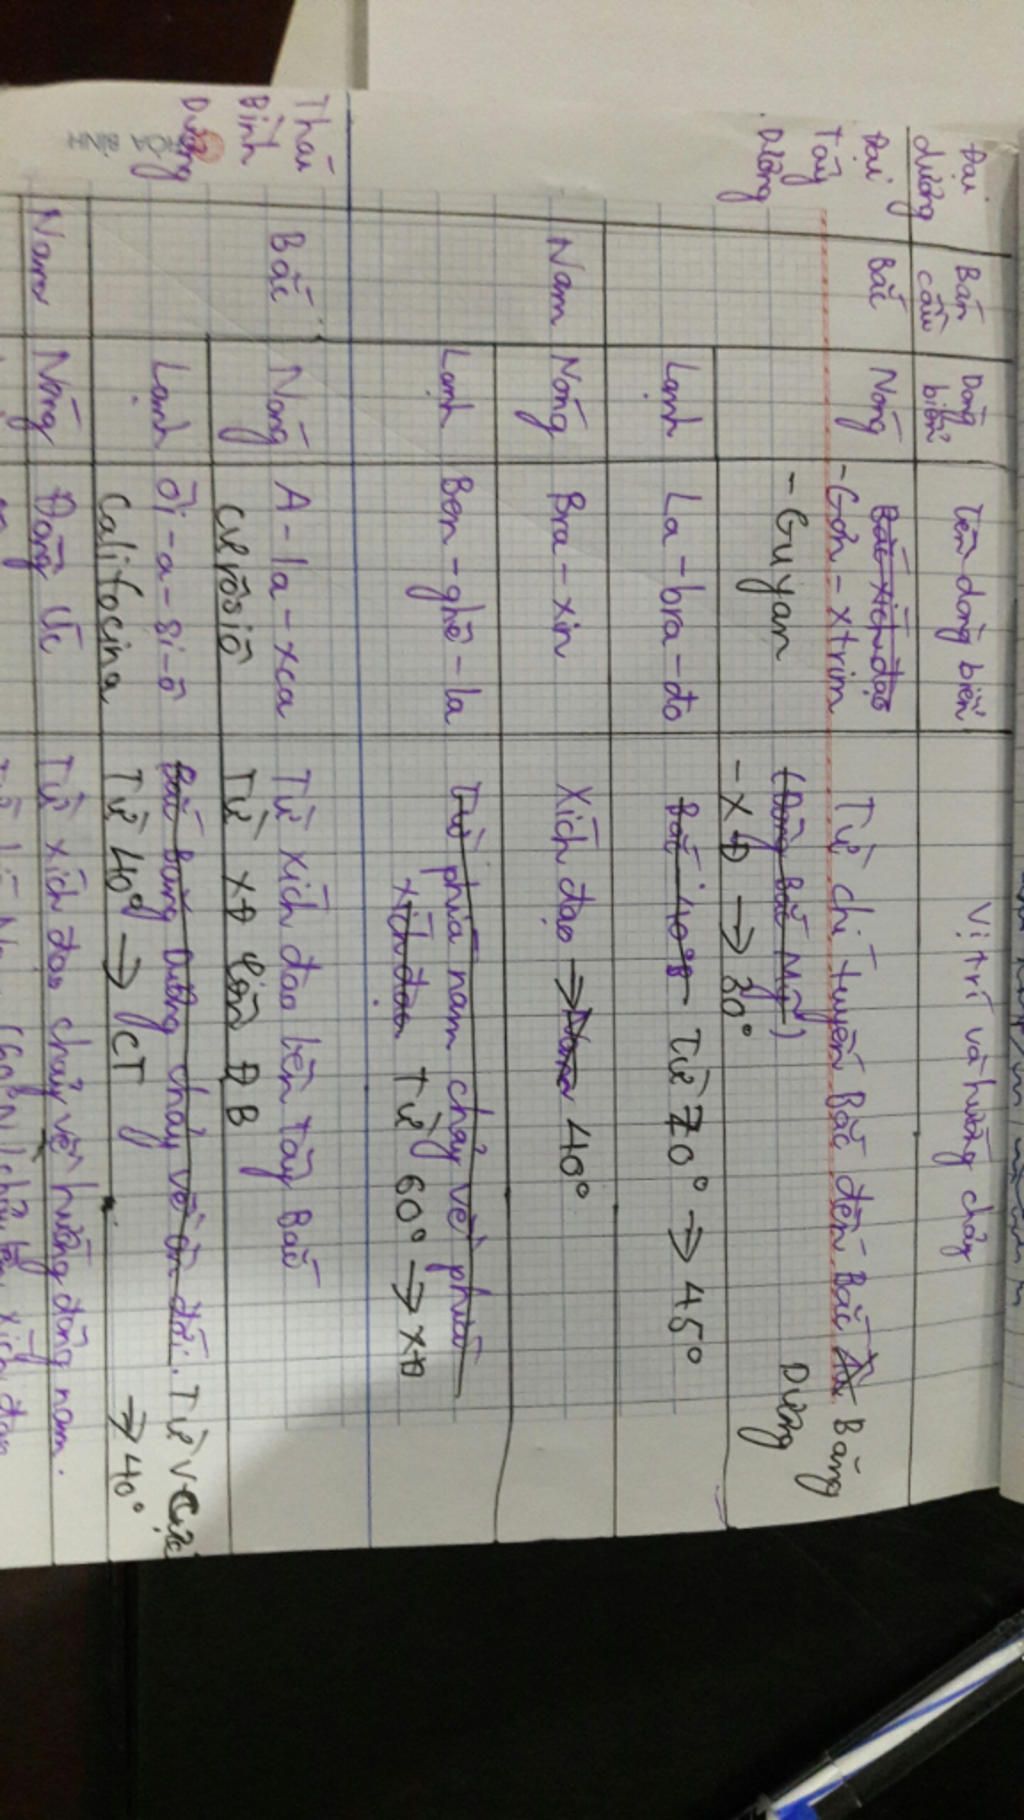 Đại dương
Bán cầu
Dòng biển
Tên dòng biển
Vị trí và hướng chảy
Đại Tây Dương
Bắc
Nóng
Bắc xích đạo
-Gơn-xtrim
-Guyan
Từ chí tuyến Bắc đến Bắc Băng Dương
(Đông Bắc Mỹ)
-XĐ → 30°
Lạnh
La-bra-đo
Bắc 40° Từ 70° → 45°
Nam
Nóng
Bra-xin
Xích đạo → Nam 40°
Lạnh
Ben-ghê-la
Từ phía nam chảy về phía
xích đạo Từ 60° → XĐ
Thái Bình Dương
HÒA BÌNH
Bắc
Nóng
A-la-xca
Cưrôsiô
Từ xích đạo lên Tây Bắc
Từ XĐ lên ĐB
Lạnh
Ôi-a-si-ô
Califocina
Bắc Băng Dương chảy về ôn đới. Từ V Cực
→ 40°
Từ 40° → CT
Nam
Nóng
Đông Úc
Từ xích đạo chảy về hướng đông nam.